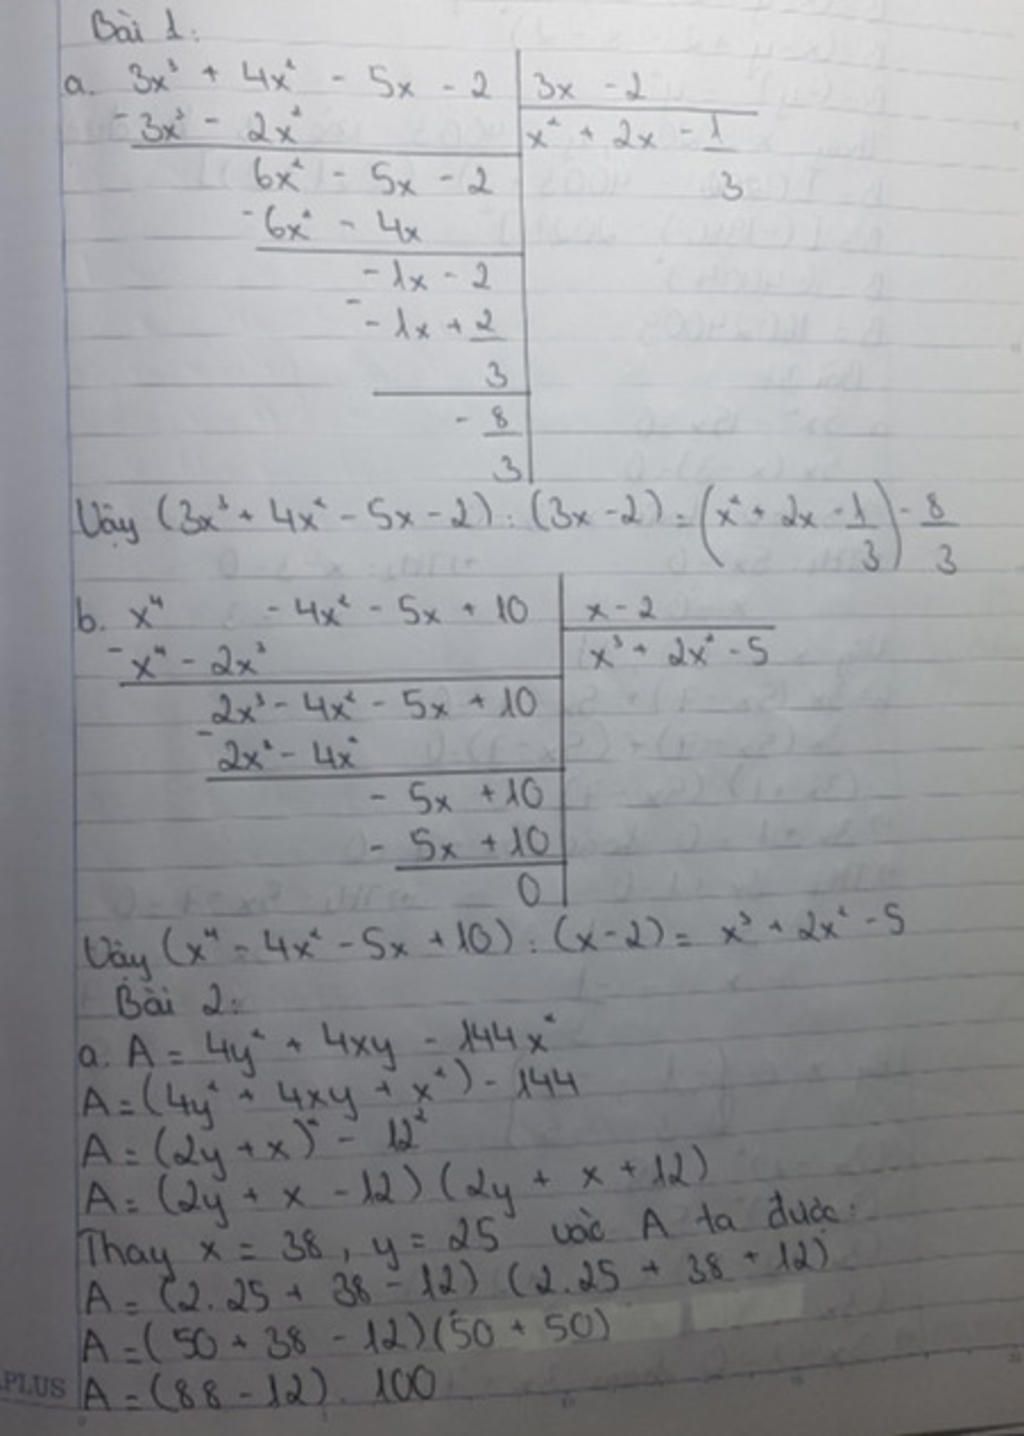 Bài 1:
a. 3x³ + 4x² - 5x - 2 | 3x - 2
- 3x³ - 2x² | x² + 2x - 1/3
6x² - 5x - 2
- 6x² - 4x
- 1x - 2
- - 1x + 2/3
- 8/3
Vậy (3x³ + 4x² - 5x - 2) : (3x - 2) = (x² + 2x - 1/3) - 8/3
b. x⁴ - 4x² - 5x + 10 | x - 2
- x⁴ - 2x³ | x³ + 2x² - 5
2x³ - 4x² - 5x + 10
- 2x³ - 4x²
- 5x + 10
- 5x + 10
0
Vậy (x⁴ - 4x² - 5x + 10) : (x - 2) = x³ + 2x² - 5
Bài 2:
a. A = 4y² + 4xy - 144x²
A = (4y² + 4xy + x²) - 144
A = (2y + x)² - 12²
A = (2y + x - 12) (2y + x + 12)
Thay x = 38, y = 25 vào A ta được:
A = (2.25 + 38 - 12) (2.25 + 38 + 12)
A = (50 + 38 - 12)(50 + 50)
A = (88 - 12). 100
PLUS